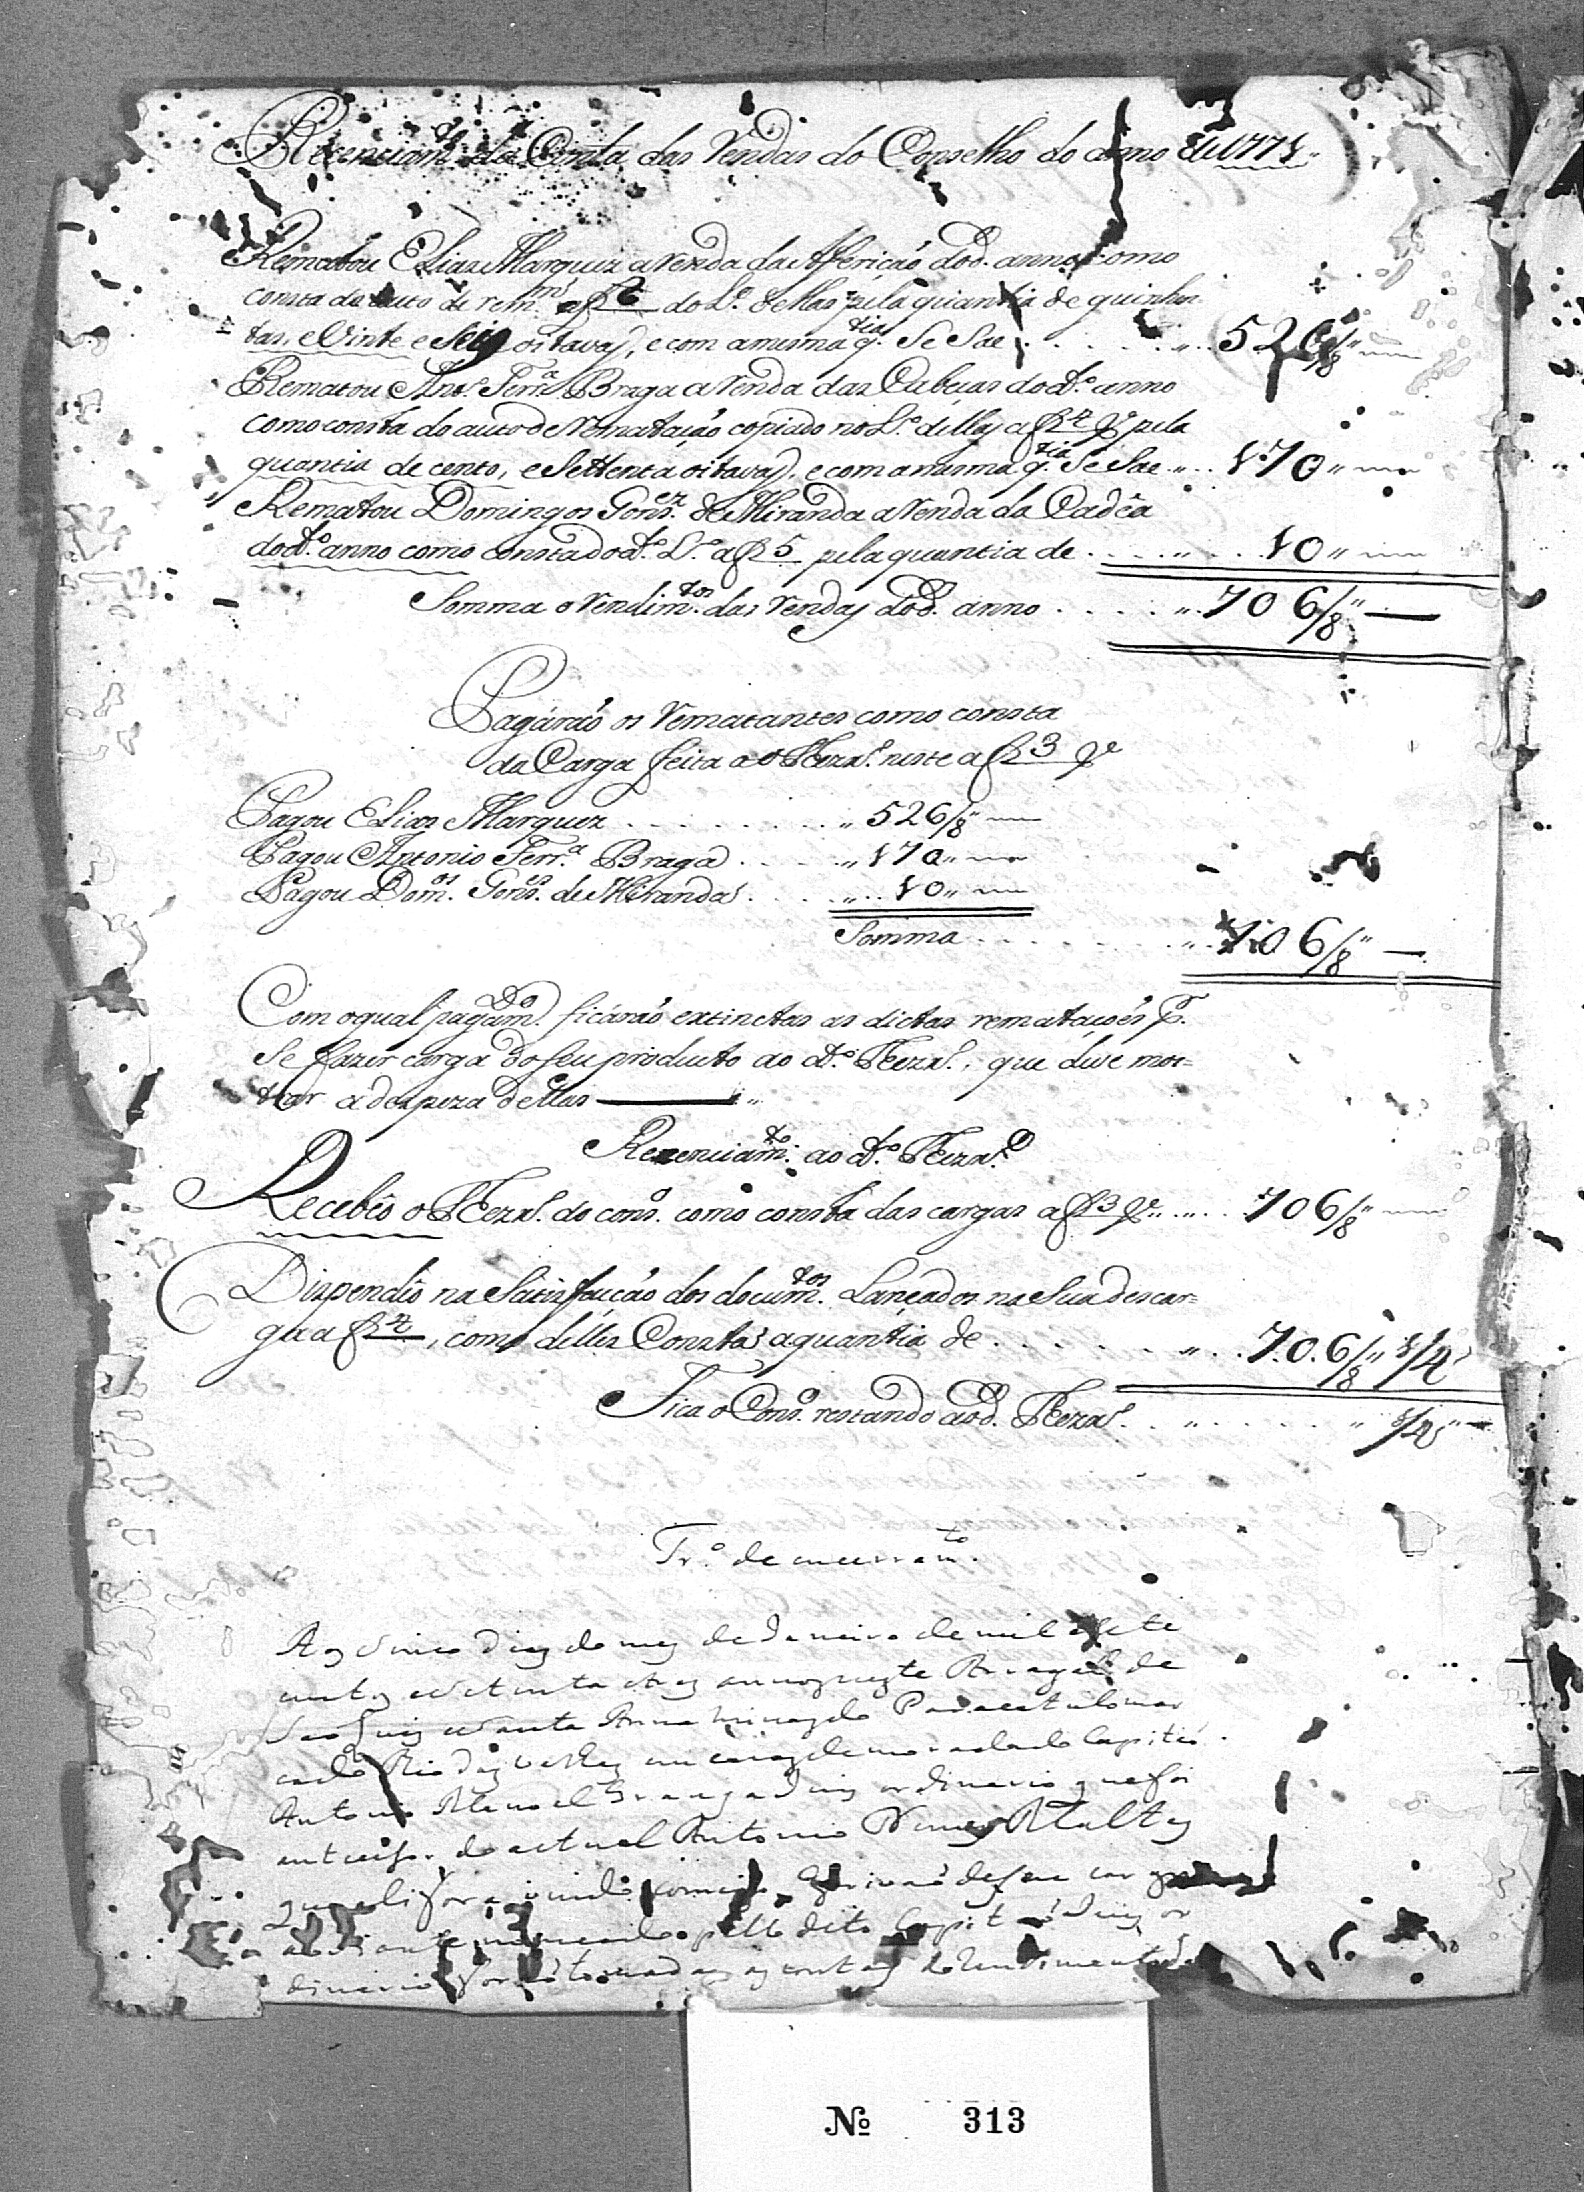 Recenciam.to da Conta das Rendas do Conselho do anno de 1771
Rematou Elias Marquez a renda da Affericaõ do d.o anno como
consta do auto de rem.m a f 6 do L.o dellas pela quantia de quinhen
tas, e Vinte e Seis oitavas, e com a mesma q.tia Se Sae . . . . . 526/8
Rematou Ant.o Ferr.a Braga a renda das Cabeças do d.o anno
como consta do auto de Rematação copiado no L.o dellas a f 4 V.e pela
quantia de cento, e Settenta oitavas, e com a mesma q.tia Se Sae . . 170
Rematou Domingos Gons.ez de Miranda a renda da Cadêa
do d.o anno como consta do d.o L.o a f 5 pela quantia de . . . . . . 10
Somma o rendim.tos das rendas do d.o anno . . . . . 706/8
Pagáraõ os rematantes como consta
da Carga feita ao Thezr.o neste a f 3 V.e
Pagou Elias Marquez . . . . . . . 526/8
Pagou Antonio Ferr.a Braga . . . . 170
Pagou Dom.os Gons.es de Miranda . . . . . 10
Somma . . . . . . . 706/8
Com o qual pagam.to ficáraõ extinctas as dictas remataçoẽs p.r
Se fazer carga do seu producto ao d.o Thezr.o, que deve mos=
trar a despeza dellas
Recenciam.to ao d.o Thezr.o
Recebêo o Thezr.o do cons.o como consta das cargas a f 3 V.e . . . . 706/8
Dispendêo na Satisfaçaõ dos docum.tos Lançados na Sua descar=
ga a f 4, como delles Consta a quantia de . . . . . . . . 706/8 1/4
Fica o Cons.o restando ao d.o Thezr.o . . . . . . . 1/4
Tr.o de encerram.to
Aos Sinco dias do mes de Janeiro de mil e sete
centos e setenta e tres annos neste Arrayal de
Sao Luis e Santa Anna minas do Paracatu comar
ca do Rio das Velhas em cazas de morada do Capitaõ
Antonio Manoel Granja Juis ordinario que foi
antecessor do actual Antonio Nunes Maltez
que ali fora vindo comigo Escrivaõ de seu cargo
ao diante nomeado e pello dito Capit.aõ Juis or
dinario foraõ tomadas as contas do Rendimento
Nº 313